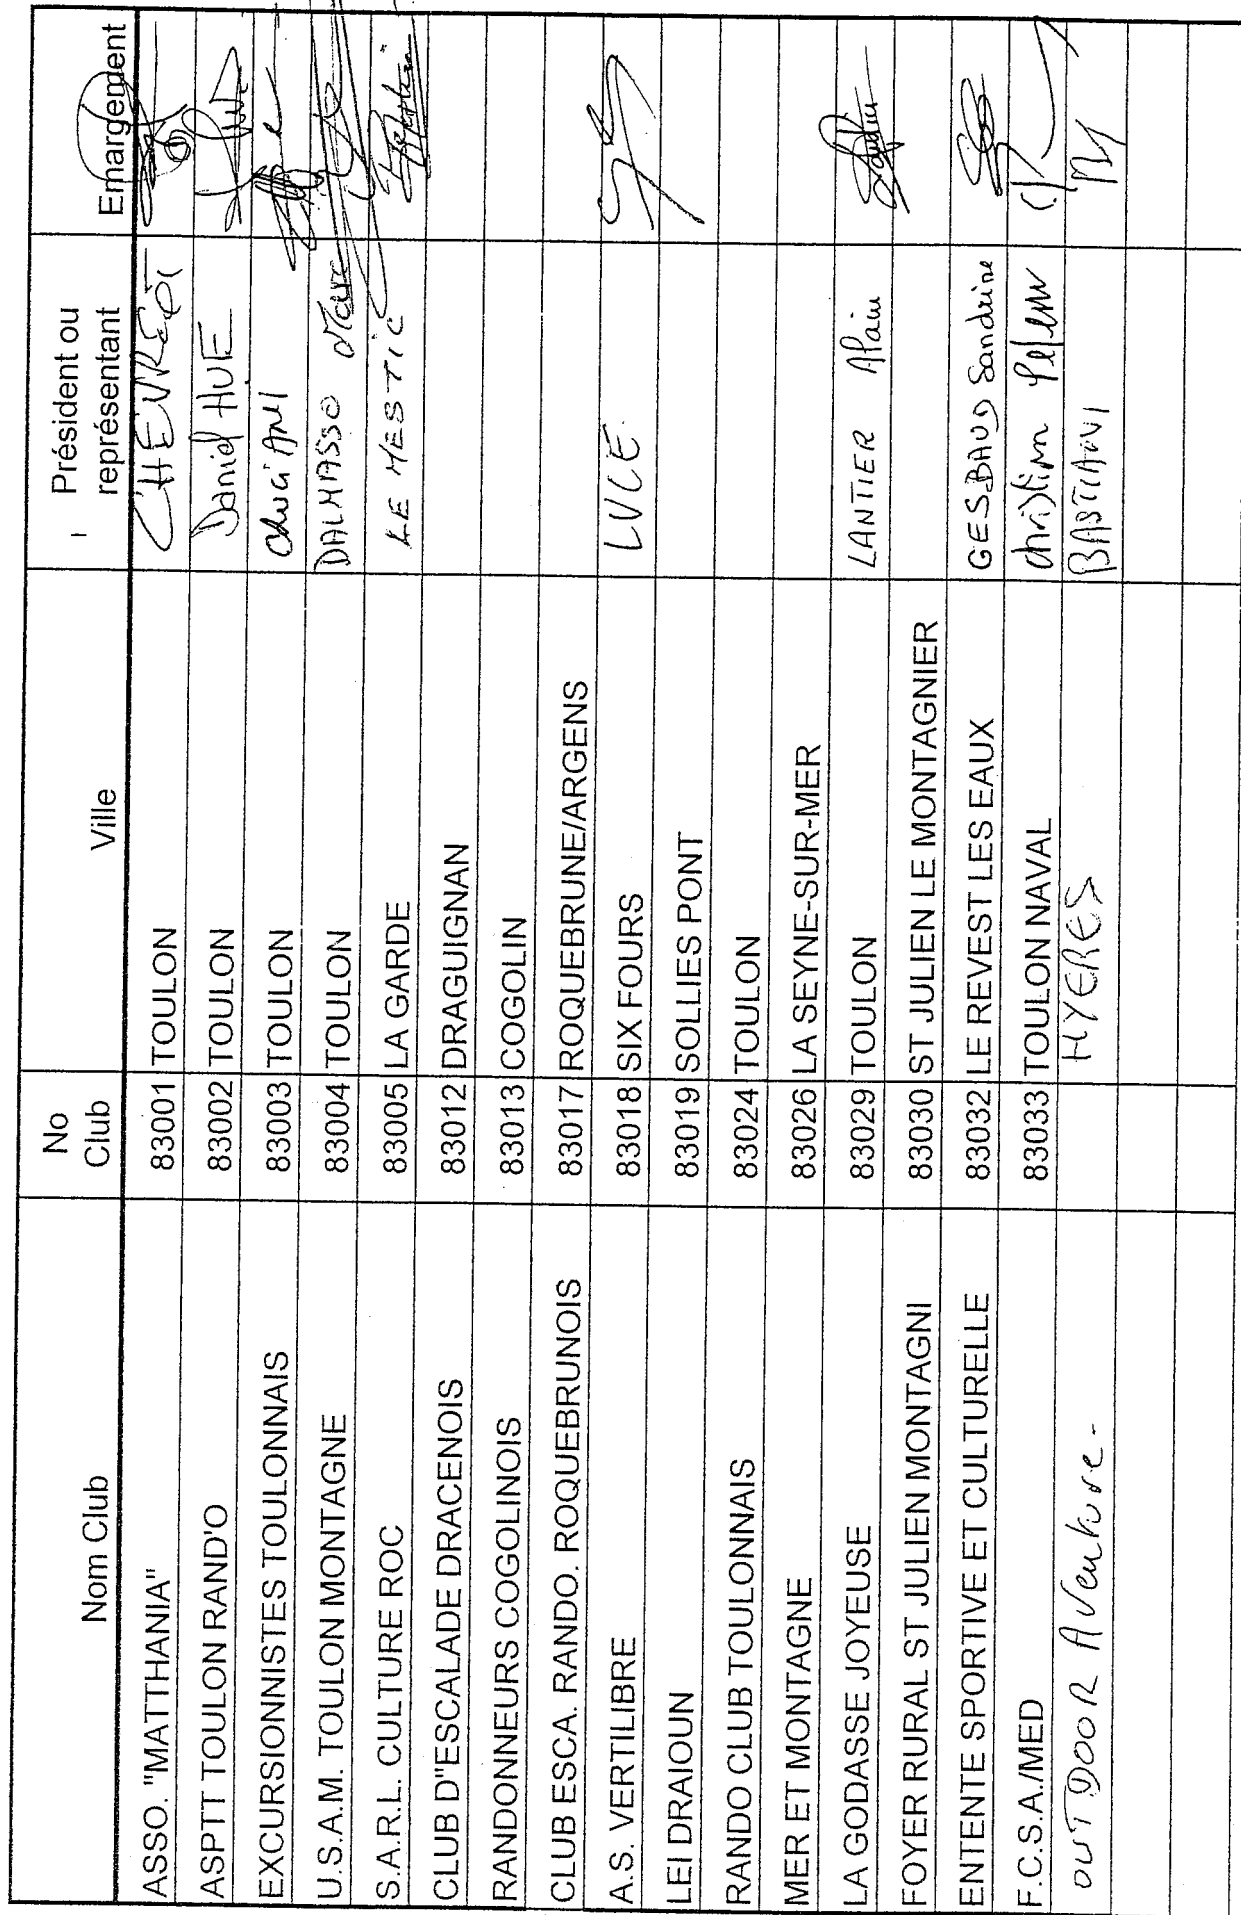 Nom Club No Club Ville Président ou représentant Emargement
ASSO. "MATTHANIA" 83001 TOULON
ASPTT TOULON RAND'O 83002 TOULON Daniel HUE
EXCURSIONNISTES TOULONNAIS 83003 TOULON
U.S.A.M. TOULON MONTAGNE 83004 TOULON DALMASSO Marc
S.A.R.L. CULTURE ROC 83005 LA GARDE LE MESTIC
CLUB D"ESCALADE DRACENOIS 83012 DRAGUIGNAN
RANDONNEURS COGOLINOIS 83013 COGOLIN
CLUB ESCA. RANDO. ROQUEBRUNOIS 83017 ROQUEBRUNE/ARGENS
A.S. VERTILIBRE 83018 SIX FOURS LUCE
LEI DRAIOUN 83019 SOLLIES PONT
RANDO CLUB TOULONNAIS 83024 TOULON
MER ET MONTAGNE 83026 LA SEYNE-SUR-MER
LA GODASSE JOYEUSE 83029 TOULON LANTIER Alain
FOYER RURAL ST JULIEN MONTAGNI 83030 ST JULIEN LE MONTAGNIER
ENTENTE SPORTIVE ET CULTURELLE 83032 LE REVEST LES EAUX GESBAUD Sandrine
F.C.S.A./MED 83033 TOULON NAVAL Christian
OUTDOOR Aventure - HYERES BASTIANI